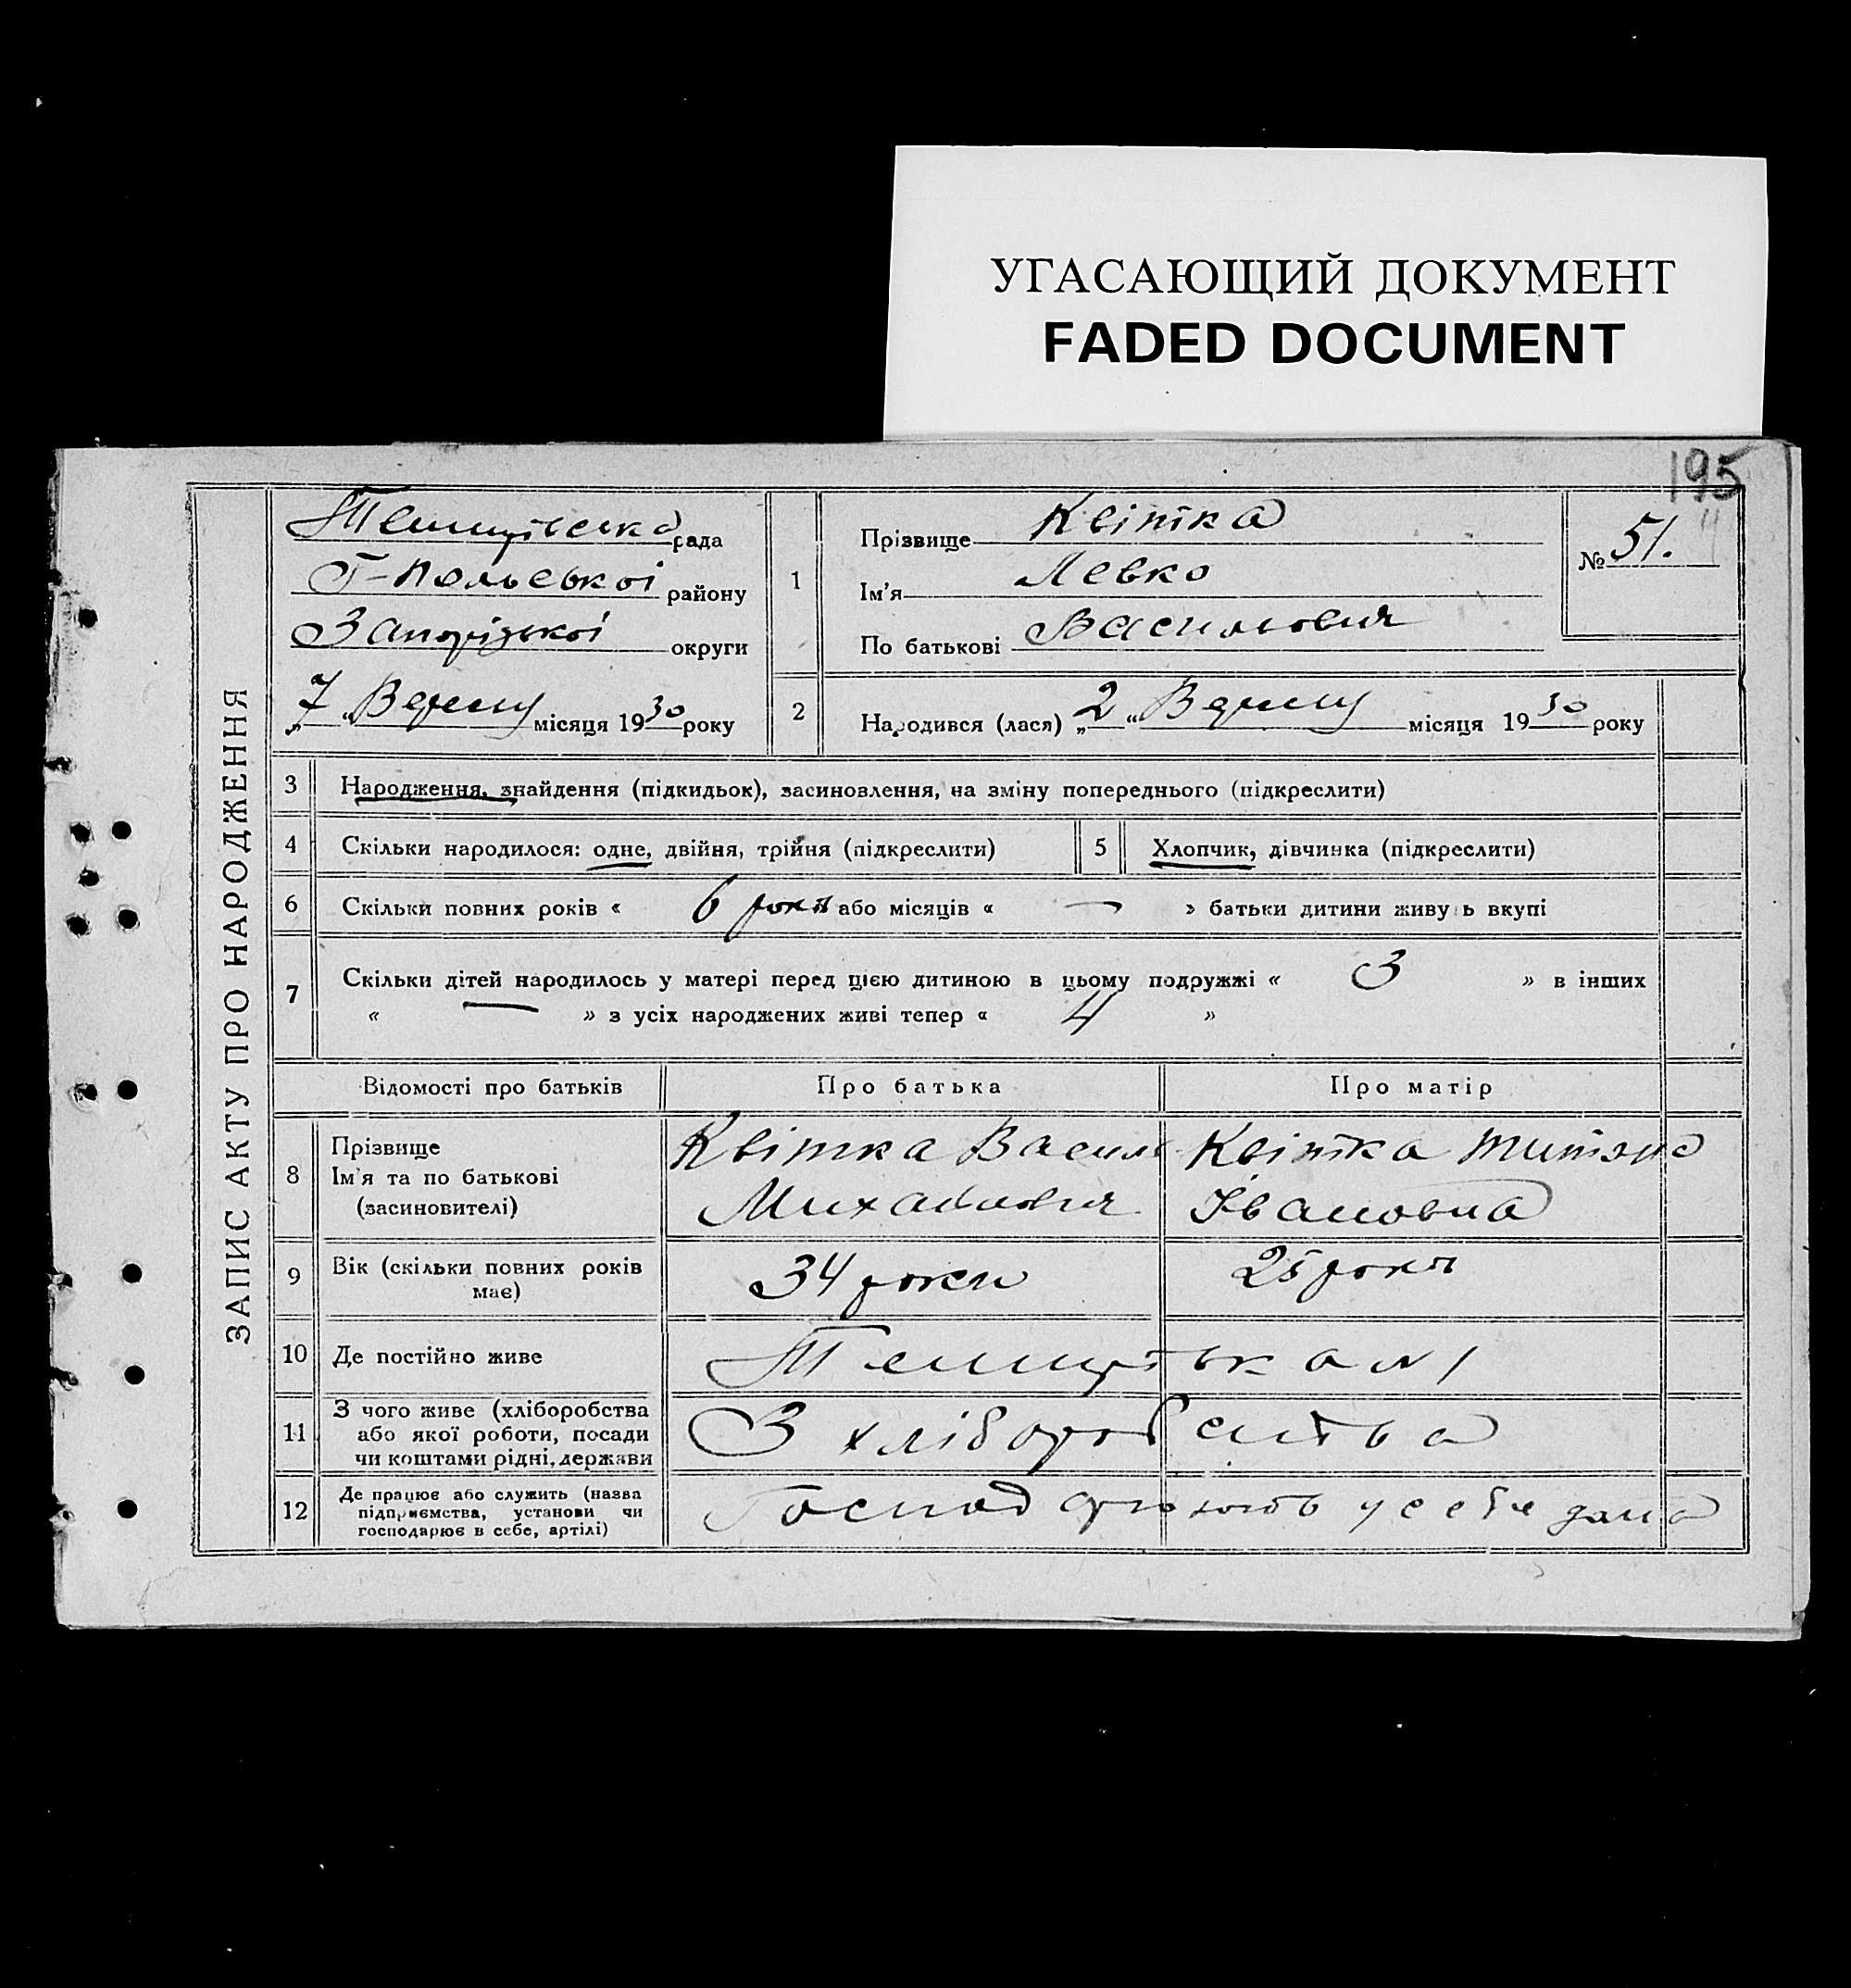 УГАСАЮЩИЙ ДОКУМЕНТ
FADED DOCUMENT
195
ЗАПИС АКТУ ПРО НАРОДЖЕННЯ
рада
Г-Польської району
Запорізької округи
„7“ Вересня місяця 1930 року
1
Прізвище Квітка
Ім'я Левко
По батькові Васильович
№ 51.
2
Народився (лася) „2“ Вересня місяця 1930 року
3 Народження, знайдення (підкидьок), засиновлення, на зміну попереднього (підкреслити)
4 Скільки народилося: одне, двійня, трійня (підкреслити)
5 Хлопчик, дівчинка (підкреслити)
6 Скільки повних років « 6 роки або місяців « — » батьки дитини живуть вкупі
7 Скільки дітей народилось у матері перед цією дитиною в цьому подружжі « 3 » в інших
« — » з усіх народжених живі тепер « 4 »
Відомості про батьків Про батька Про матір
8
Прізвище
Ім'я та по батькові
(засновителі)
Квітка Василь
Михайлович
Квітка
Івановна
9 Вік (скільки повних років
має)
34 роки
25 роки
10 Де постійно живе
11 З чого живе (хліборобства
або якої роботи, посади
чи коштами рідні, держави
З хліборобства
12 Де працює або служить (назва
підприємства, установи чи
господарює в себе, артілі)
Господарюють у себе дома